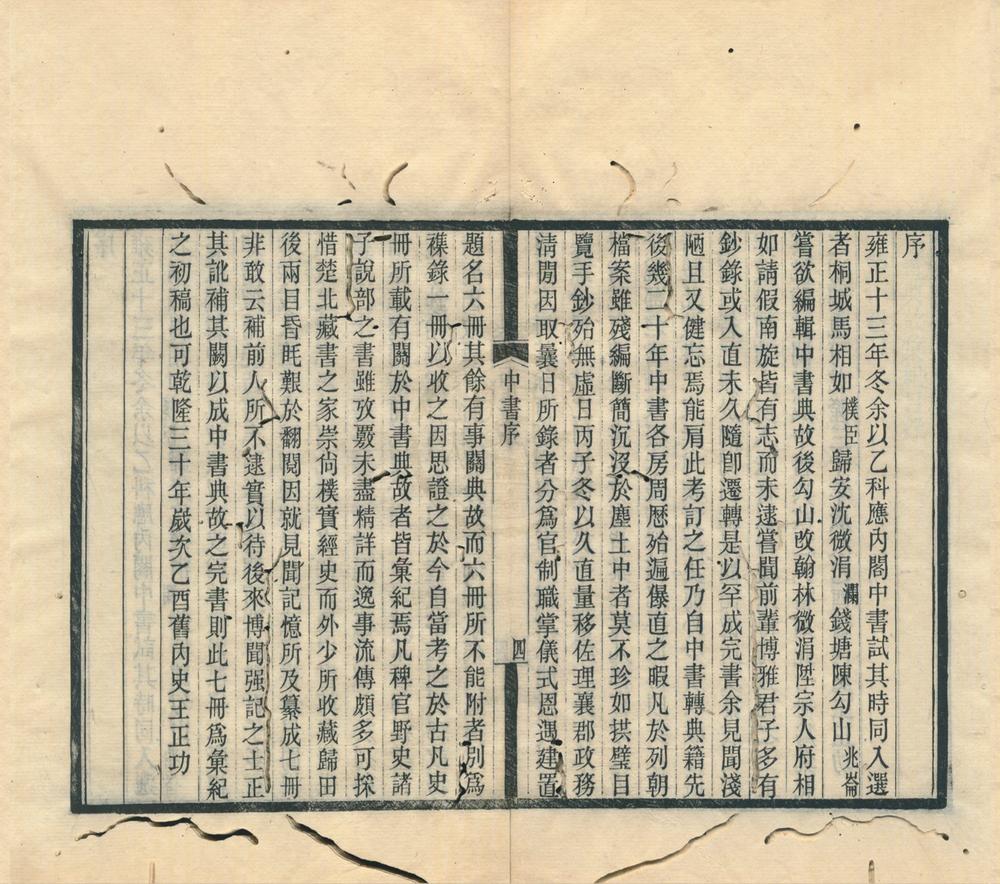 序
雍正十三年冬余以乙科應內閣中書試其時同入選
者桐城馬相如樸臣歸安沈微涓瀾錢塘陳勾山兆崙
嘗欲編輯中書典故後勾山改翰林微涓陞宗人府相
如請假南旋皆有志而未逮嘗聞前輩博雅君子多有
鈔錄或入直未久隨卽遷轉是以罕成完書余見聞淺
陋且又健忘焉能肩此考訂之任乃自中書轉典籍先
後幾二十年中書各房周歷殆遍儤直之暇凡於列朝
檔案雖殘編斷簡沉沒於塵土中者莫不珍如拱璧目
覽手鈔殆無虛日丙子冬以久直量移佐理襄郡政務
淸閒因取曩日所錄者分爲官制職掌儀式恩遇建置
中書序
四
題名六冊其餘有事關典故而六冊所不能附者別爲
襍錄一冊以收之因思證之於今自當考之於古凡史
冊所載有關於中書典故者皆彙紀焉凡稗官野史諸
子說部之書雖攷覈未盡精詳而逸事流傳頗多可採
惜楚北藏書之家崇尙樸實經史而外少所收藏歸田
後兩目昏眊艱於翻閱因就見聞記憶所及纂成七冊
非敢云補前人所不逮實以待後來博聞强記之士正
其訛補其闕以成中書典故之完書則此七冊爲彙紀
之初稿也可乾隆三十年歲次乙酉舊內史王正功